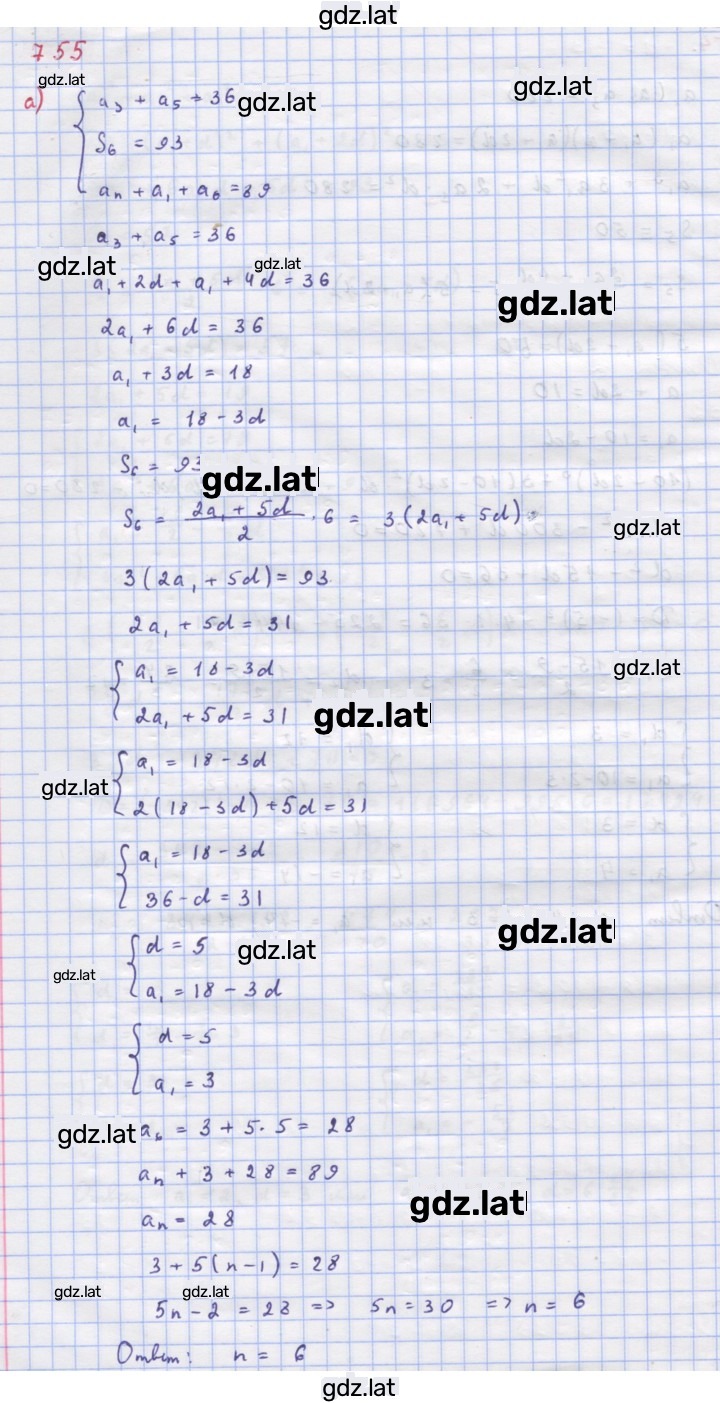 gdz.lat
755
gdz.lat
а) a₃ + a₅ = 36 gdz.lat gdz.lat
S₆ = 93
aₙ + a₁ + a₆ = 89
a₃ + a₅ = 36
gdz.lat gdz.lat
a₁ + 2d + a₁ + 4d = 36
gdz.lat
2a₁ + 6d = 36
a₁ + 3d = 18
a₁ = 18 - 3d
S₆ = 93
gdz.lat
S₆ = (2a₁ + 5d)/2 · 6 = 3(2a₁ + 5d)
gdz.lat
3(2a₁ + 5d) = 93
2a₁ + 5d = 31
a₁ = 18 - 3d gdz.lat
2a₁ + 5d = 31 gdz.lat
a₁ = 18 - 3d
gdz.lat
2(18 - 3d) + 5d = 31
a₁ = 18 - 3d
36 - d = 31
gdz.lat
d = 5 gdz.lat
gdz.lat
a₁ = 18 - 3d
d = 5
a₁ = 3
gdz.lat a₆ = 3 + 5 · 5 = 28
aₙ + 3 + 28 = 89
gdz.lat
aₙ = 28
3 + 5(n - 1) = 28
gdz.lat gdz.lat
5n - 2 = 28 => 5n = 30 => n = 6
Ответ: n = 6
gdz.lat